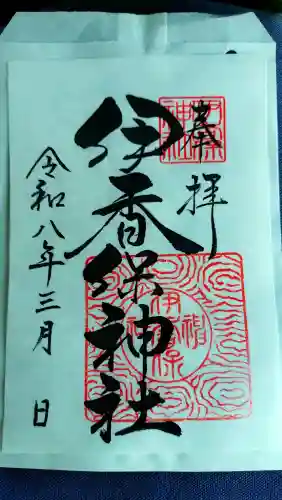 奉拝
伊香保神社
令和八年三月 日